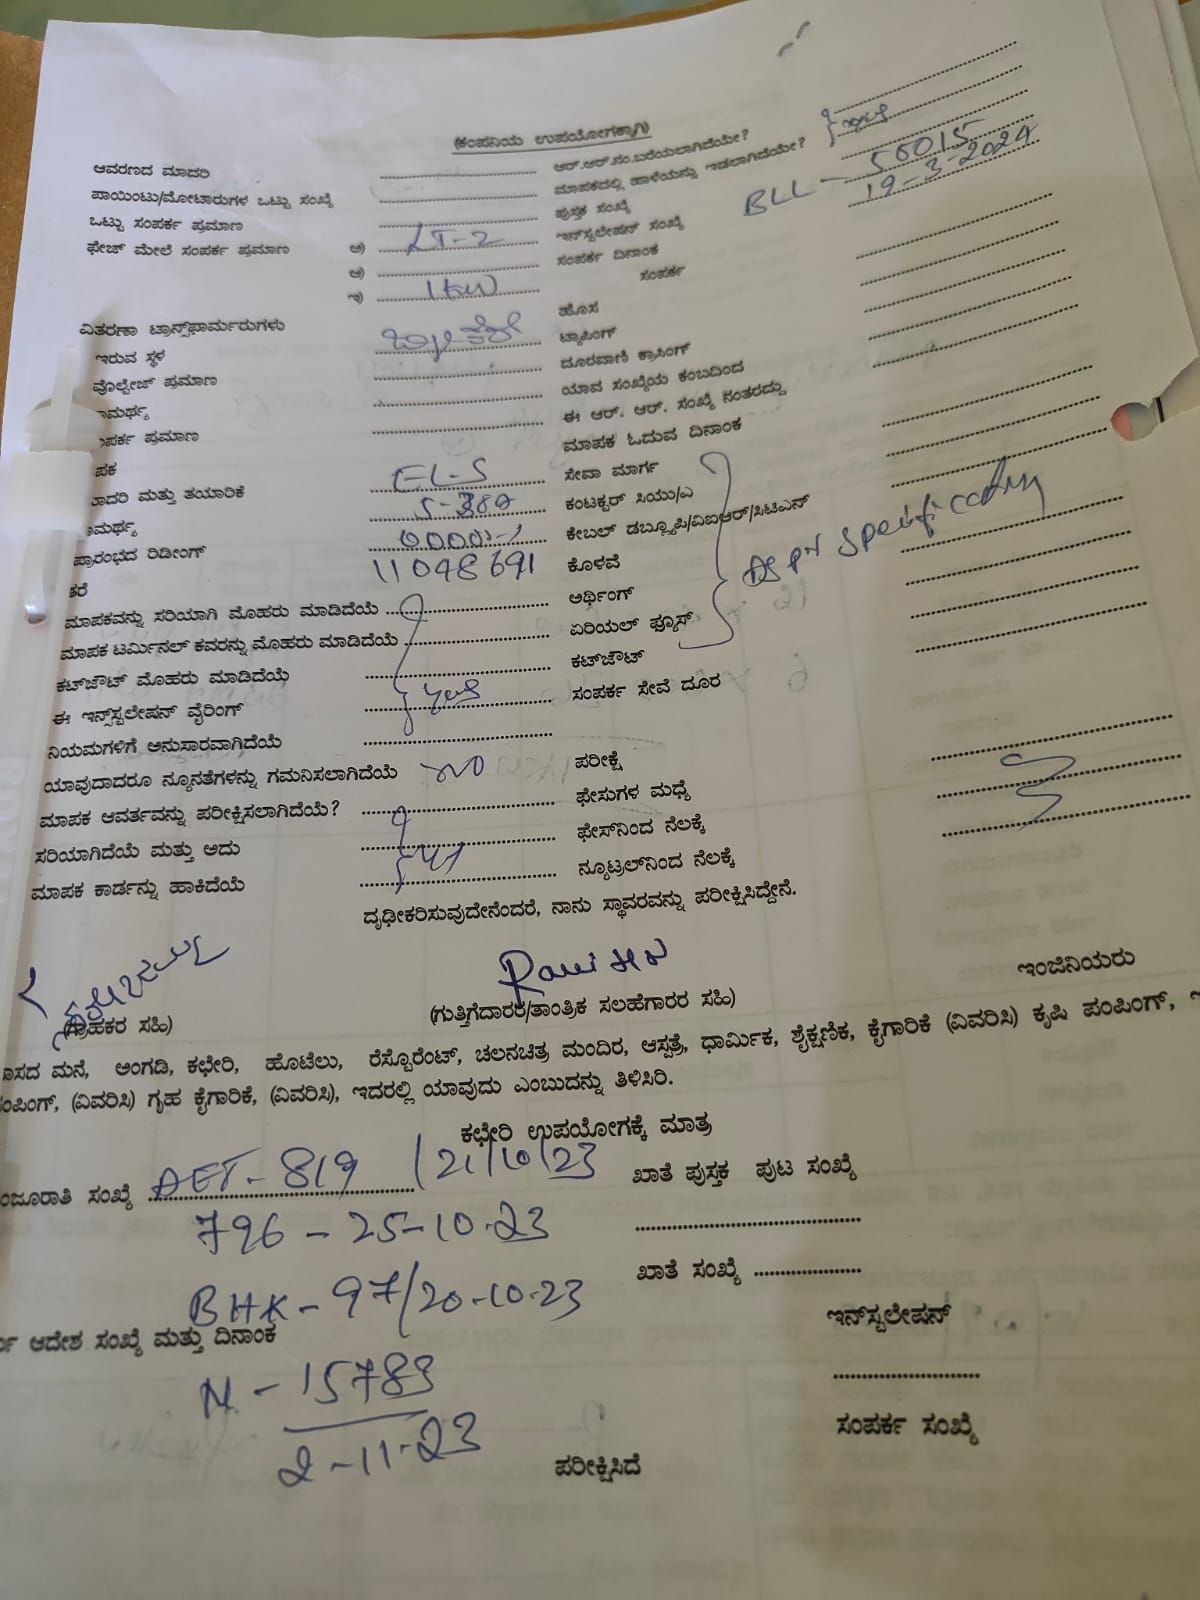 (ಕಂಪನಿಯ ಉಪಯೋಗಕ್ಕಾಗಿ)
ಆವರಣದ ಮಾದರಿ
ಪಾಯಿಂಟು/ಮೋಟಾರುಗಳ ಒಟ್ಟು ಸಂಖ್ಯೆ
ಒಟ್ಟು ಸಂಪರ್ಕ ಪ್ರಮಾಣ
ಫೇಜ್ ಮೇಲೆ ಸಂಪರ್ಕ ಪ್ರಮಾಣ ಅ) LT-2
ಆ)
ಇ) 1KW
ವಿತರಣಾ ಟ್ರಾನ್ಸ್‌ಫಾರ್ಮರುಗಳು
ಇರುವ ಸ್ಥಳ
ವೊಲ್ಟೇಜ್ ಪ್ರಮಾಣ
ಾಮರ್ಥ್ಯ
ಪರ್ಕ ಪ್ರಮಾಣ
ಪಕ
ಾದರಿ ಮತ್ತು ತಯಾರಿಕೆ EL-S
ಾಮರ್ಥ್ಯ
ಪ್ರಾರಂಭದ ರಿಡೀಂಗ್
ತರೆ 11048691
ಮಾಪಕವನ್ನು ಸರಿಯಾಗಿ ಮೊಹರು ಮಾಡಿದೆಯೆ
ಮಾಪಕ ಟರ್ಮಿನಲ್ ಕವರನ್ನು ಮೊಹರು ಮಾಡಿದೆಯೆ
ಕಟ್‌ಔಟ್ ಮೊಹರು ಮಾಡಿದೆಯೆ
ಈ ಇನ್ಸ್‌ಸ್ಟಲೇಷನ್ ವೈರಿಂಗ್ yes
ನಿಯಮಗಳಿಗೆ ಅನುಸಾರವಾಗಿದೆಯೆ
ಯಾವುದಾದರೂ ನ್ಯೂನತೆಗಳನ್ನು ಗಮನಿಸಲಾಗಿದೆಯೆ NO
ಮಾಪಕ ಆವರ್ತವನ್ನು ಪರೀಕ್ಷಿಸಲಾಗಿದೆಯೆ?
ಸರಿಯಾಗಿದೆಯೆ ಮತ್ತು ಅದು
ಮಾಪಕ ಕಾರ್ಡನ್ನು ಹಾಕಿದೆಯೆ
ಆರ್.ಆರ್.ನಂ.ಬರೆಯಲಾಗಿದೆಯೇ?
ಮಾಪಕದಲ್ಲಿ ಹಾಳೆಯನ್ನು ಇಡಲಾಗಿದೆಯೇ? yes
ಪುಸ್ತಕ ಸಂಖ್ಯೆ
ಇನ್‌ಸ್ಟಲೇಷನ್ ಸಂಖ್ಯೆ BLL - 50015
ಸಂಪರ್ಕ ದಿನಾಂಕ 19-3-2024
ಸಂಪರ್ಕ
ಹೊಸ
ಟ್ಯಾಪಿಂಗ್
ದೂರವಾಣಿ ಕ್ರಾಸಿಂಗ್
ಯಾವ ಸಂಖ್ಯೆಯ ಕಂಬದಿಂದ
ಈ ಆರ್. ಆರ್. ಸಂಖ್ಯೆ ನಂತರದ್ದು
ಮಾಪಕ ಓದುವ ದಿನಾಂಕ
ಸೇವಾ ಮಾರ್ಗ
ಕಂಟಕ್ಟರ್ ಸಿಯು/ಎ
ಕೇಬಲ್ ಡಬ್ಲ್ಯೂಪಿ/ವಿಐಆರ್/ಸಿಟಿಎಸ್
ಕೊಳವೆ
ಅರ್ಥಿಂಗ್
ಏರಿಯಲ್ ಫ್ಯೂಸ್
ಕಟ್‌ಔಟ್
ಸಂಪರ್ಕ ಸೇವೆ ದೂರ
ಪರೀಕ್ಷೆ
ಫೇಸುಗಳ ಮಧ್ಯೆ
ಫೇಸ್‌ನಿಂದ ನೆಲಕ್ಕೆ
ನ್ಯೂಟ್ರಲ್‌ನಿಂದ ನೆಲಕ್ಕೆ
ದೃಢೀಕರಿಸುವುದೇನೆಂದರೆ, ನಾನು ಸ್ಥಾವರವನ್ನು ಪರೀಕ್ಷಿಸಿದ್ದೇನೆ.
(ಗ್ರಾಹಕರ ಸಹಿ) (ಗುತ್ತಿಗೆದಾರರ/ತಾಂತ್ರಿಕ ಸಲಹೆಗಾರರ ಸಹಿ) ಇಂಜಿನಿಯರು
ಾಸದ ಮನೆ, ಅಂಗಡಿ, ಕಛೇರಿ, ಹೊಟೆಲು, ರೆಸ್ಟೊರೆಂಟ್, ಚಲನಚಿತ್ರ ಮಂದಿರ, ಆಸ್ಪತ್ರೆ, ಧಾರ್ಮಿಕ, ಶೈಕ್ಷಣಿಕ, ಕೈಗಾರಿಕೆ (ವಿವರಿಸಿ) ಕೃಷಿ ಪಂಪಿಂಗ್,
ಂಪಿಂಗ್, (ವಿವರಿಸಿ) ಗೃಹ ಕೈಗಾರಿಕೆ, (ವಿವರಿಸಿ), ಇದರಲ್ಲಿ ಯಾವುದು ಎಂಬುದನ್ನು ತಿಳಿಸಿರಿ.
ಕಛೇರಿ ಉಪಯೋಗಕ್ಕೆ ಮಾತ್ರ
ಂಜೂರಾತಿ ಸಂಖ್ಯೆ AET - 819 /21/10/23 ಖಾತೆ ಪುಸ್ತಕ ಪುಟ ಸಂಖ್ಯೆ
796 - 25-10-23
BHK - 97/20-10-23 ಖಾತೆ ಸಂಖ್ಯೆ
ಆದೇಶ ಸಂಖ್ಯೆ ಮತ್ತು ದಿನಾಂಕ ಇನ್‌ಸ್ಟಲೇಷನ್
N - 15783
2-11-23 ಸಂಪರ್ಕ ಸಂಖ್ಯೆ
ಪರೀಕ್ಷಿಸಿದೆ